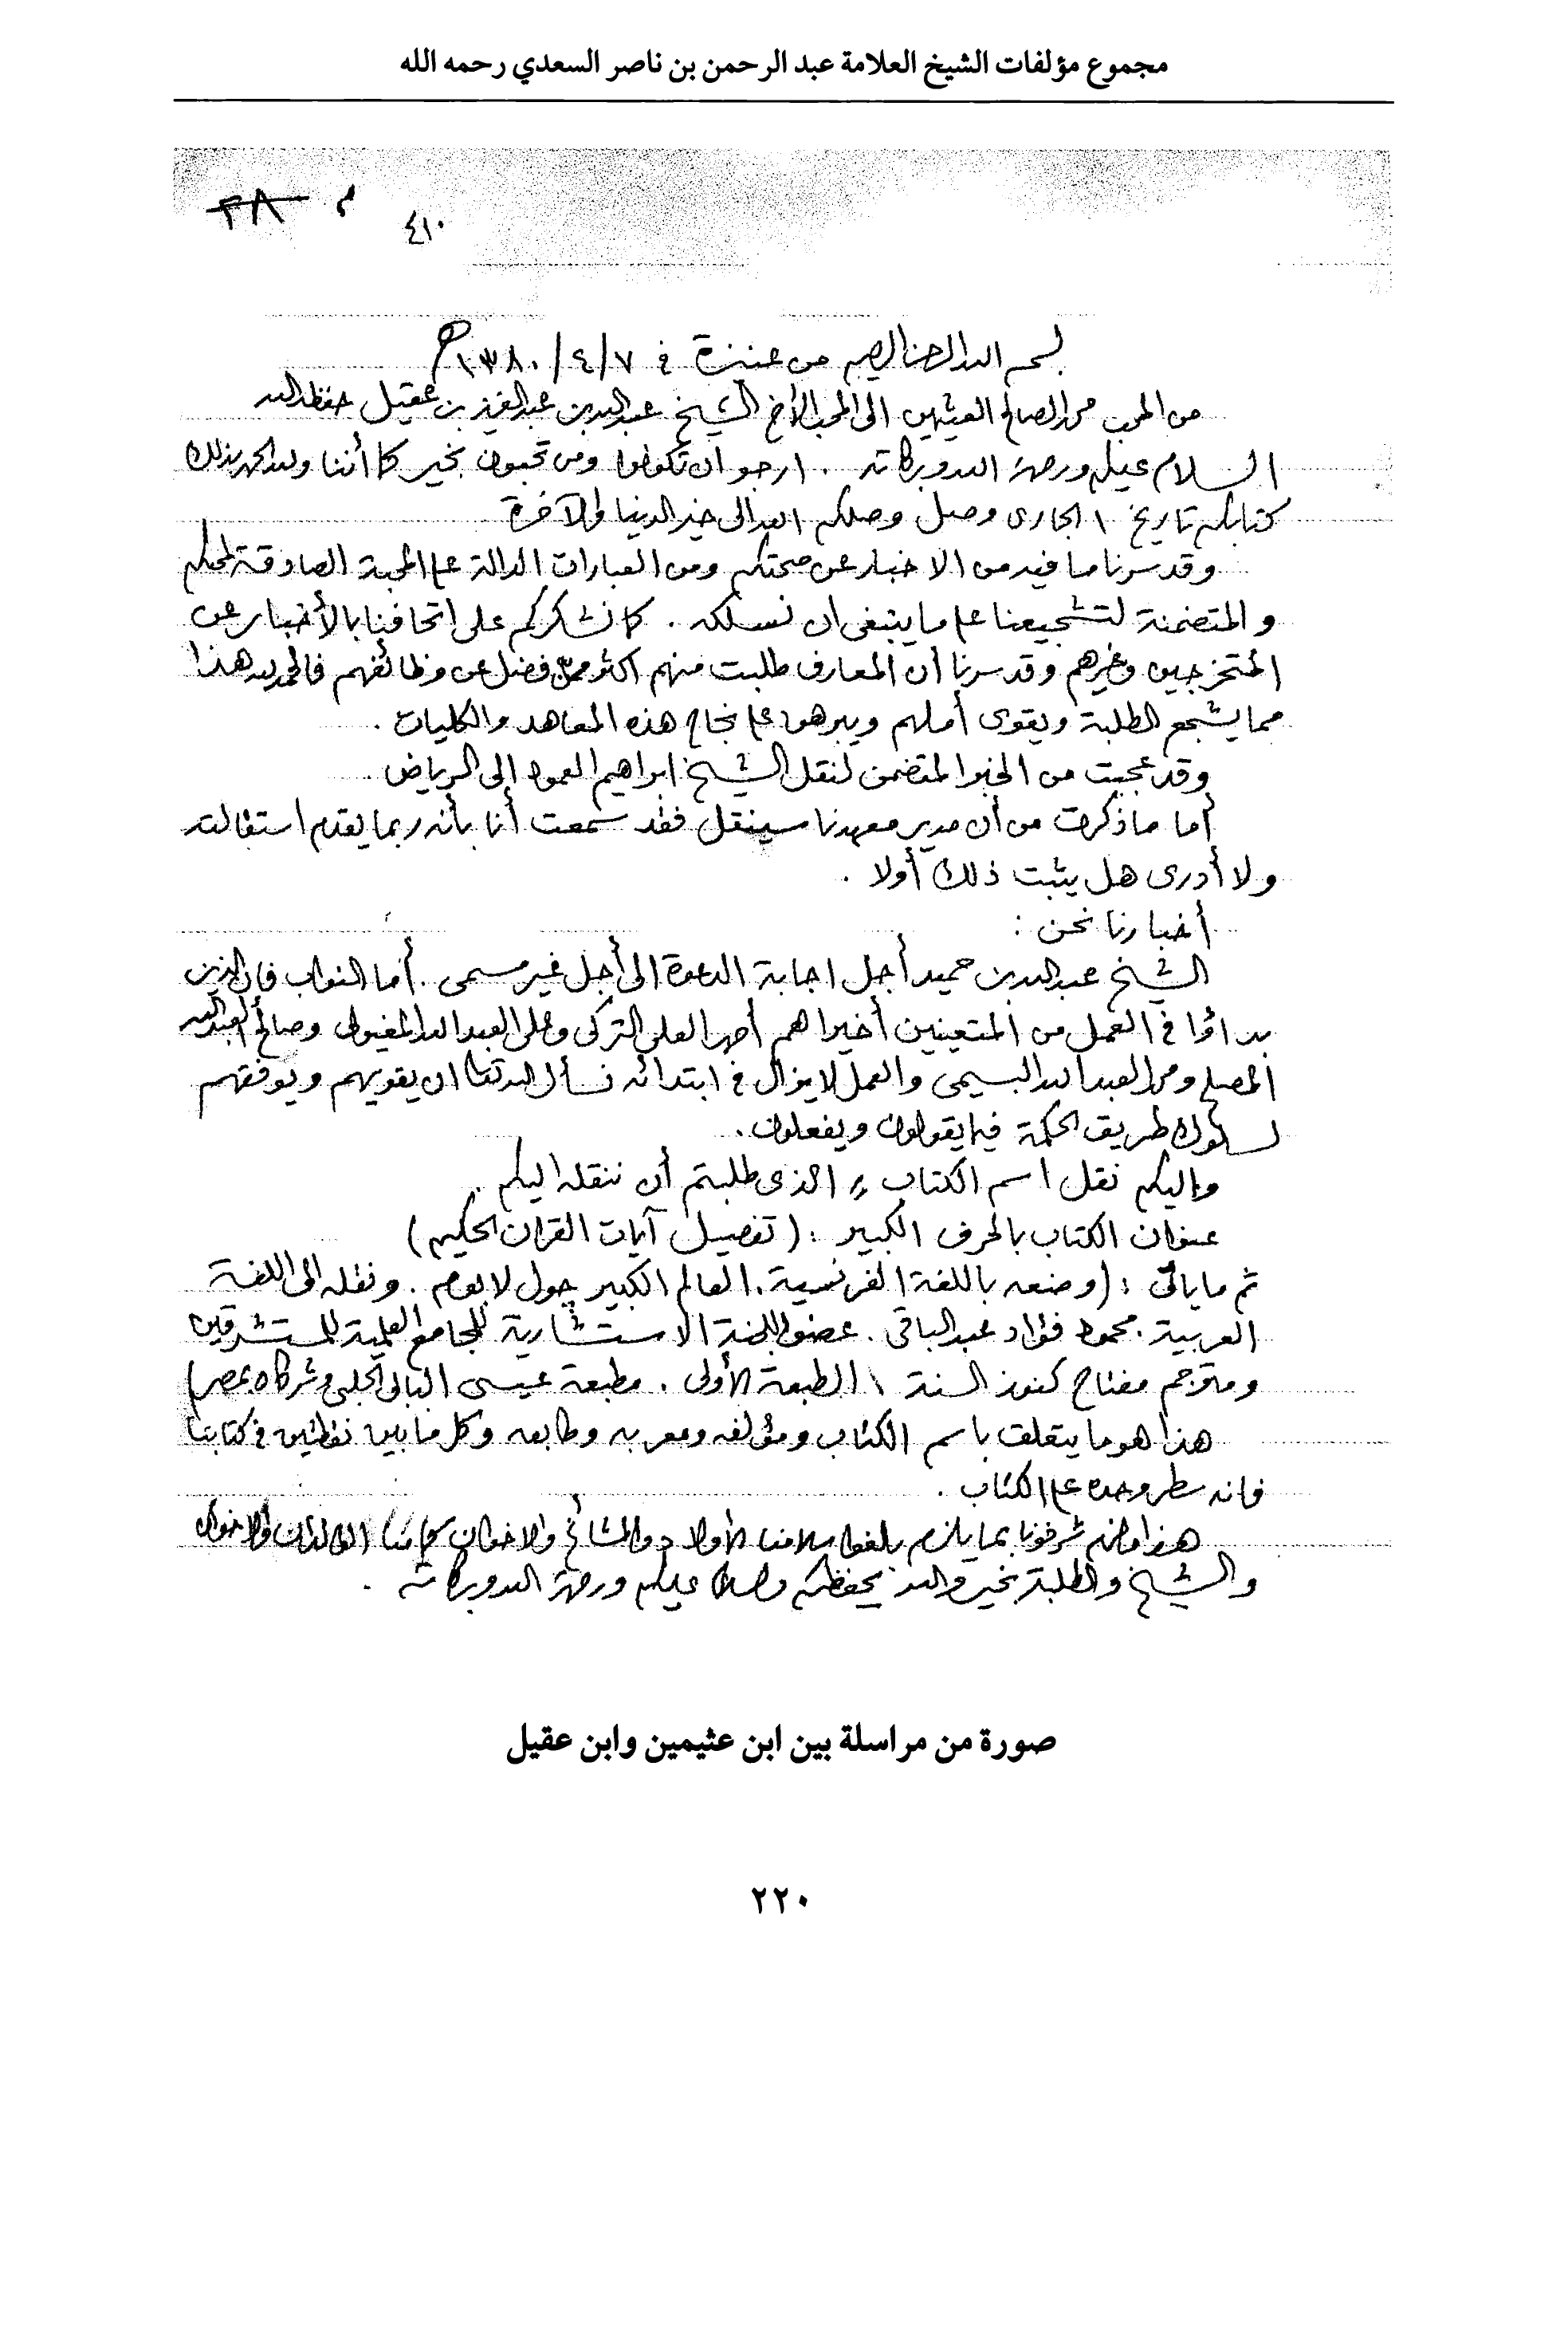 مجموع مؤلفات الشيخ العلامة عبد الرحمن بن ناصر السعدي رحمه الله
م ٢٨
٤١٠
بسم الله الرحمن الرحيم من عنيزة في ٧/٤/١٣٨٠هـ
من المحب محمد الصالح العثيمين الى المحب الأخ الشيخ عبدالله بن عبدالعزيز بن عقيل حفظه الله
السلام عليكم ورحمة الله وبركاته . ارجو ان تكونوا ومن تحبون بخير كما أننا ولله الحمد بذلك
كتابكم تاريخ ١ الجارى وصل وصلكم الله الى خير الدنيا والآخرة
وقد سرنا ما فيه من الاخبار عن صحتكم ومن العبارات الدالة على المحبة الصادقة لمحبكم
والمتضمنة لتشجيعنا على ما ينبغى ان نسلكه . كما نشكركم على اتحافنا بالأخبار عن
المتخرجين وغيرهم وقد سرنا أن المعارف طلبت منهم اكثر ممن فضل عن وظائفهم فالحمد لله هذا
مما يشجع الطلبة ويقوى أملهم ويبرهن على نجاح هذه المعاهد والكليات .
وقد عجبت من الخبر المتضمن لنقل الشيخ ابراهيم العمود إلى الرياض .
أما ما ذكرت من أن مدير معهدنا سينقل فقد سمعت أنا بأنه ربما يقدم استقالته
ولا أدرى هل يثبت ذلك أولا .
أخبارنا نحن :
الشيخ عبدالله بن حميد أجل اجابة الدعوة الى أجل غير مسمى . أما النواب فان الذين
بدأوا في العمل من المتعينين أخيرا هم العلى التركى وعلى العبدالله وصالح العبدالله
ومحمد العبدالله البسيمى والعمل لا يزال في ابتدائه نسأل الله تعالى ان يقويهم ويوفقهم
لسلوك طريق الحكمة فيما يقولون ويفعلون .
واليكم نقل اسم الكتاب الذى طلبتم أن ننقله اليكم .
عنوان الكتاب بالحرف الكبير : (تفصيل آيات القران الحكيم)
ثم ما يأتى : (وضعه باللغة الفرنسية . العالم الكبير جول لابوم . ونقله الى اللغة
العربية . محمد فؤاد عبدالباقى . عضو اللجنة الاستشارية للمجامع العلمية للمستشرقين
ومترجم مفتاح كنوز السنة \ الطبعة الأولى . مطبعة عيسى البابى الحلبى وشركاه بمصر)
هذا هو ما يتعلق باسم الكتاب ومؤلفه ومعربه وطابعه وكل ما بين نقطتين في كتابتنا
فانه سطر وحده على الكتاب .
هذا ما لزم شرفونا بما يلزم بلغوا سلامنا الأولاد والمشائخ والاخوان كما منا الوالدان والاخوان
والشيخ والطلبة بخير والله يحفظكم والسلام عليكم ورحمة الله وبركاته .
صورة من مراسلة بين ابن عثيمين وابن عقيل
٢٢٠